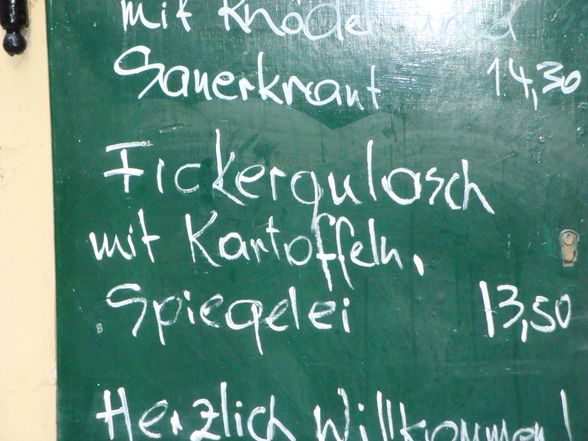 mit Knödel und
Sauerkraut 14,30
Fickergulasch
mit Kartoffeln,
Spiegelei 13,50
Herzlich Willkommen!